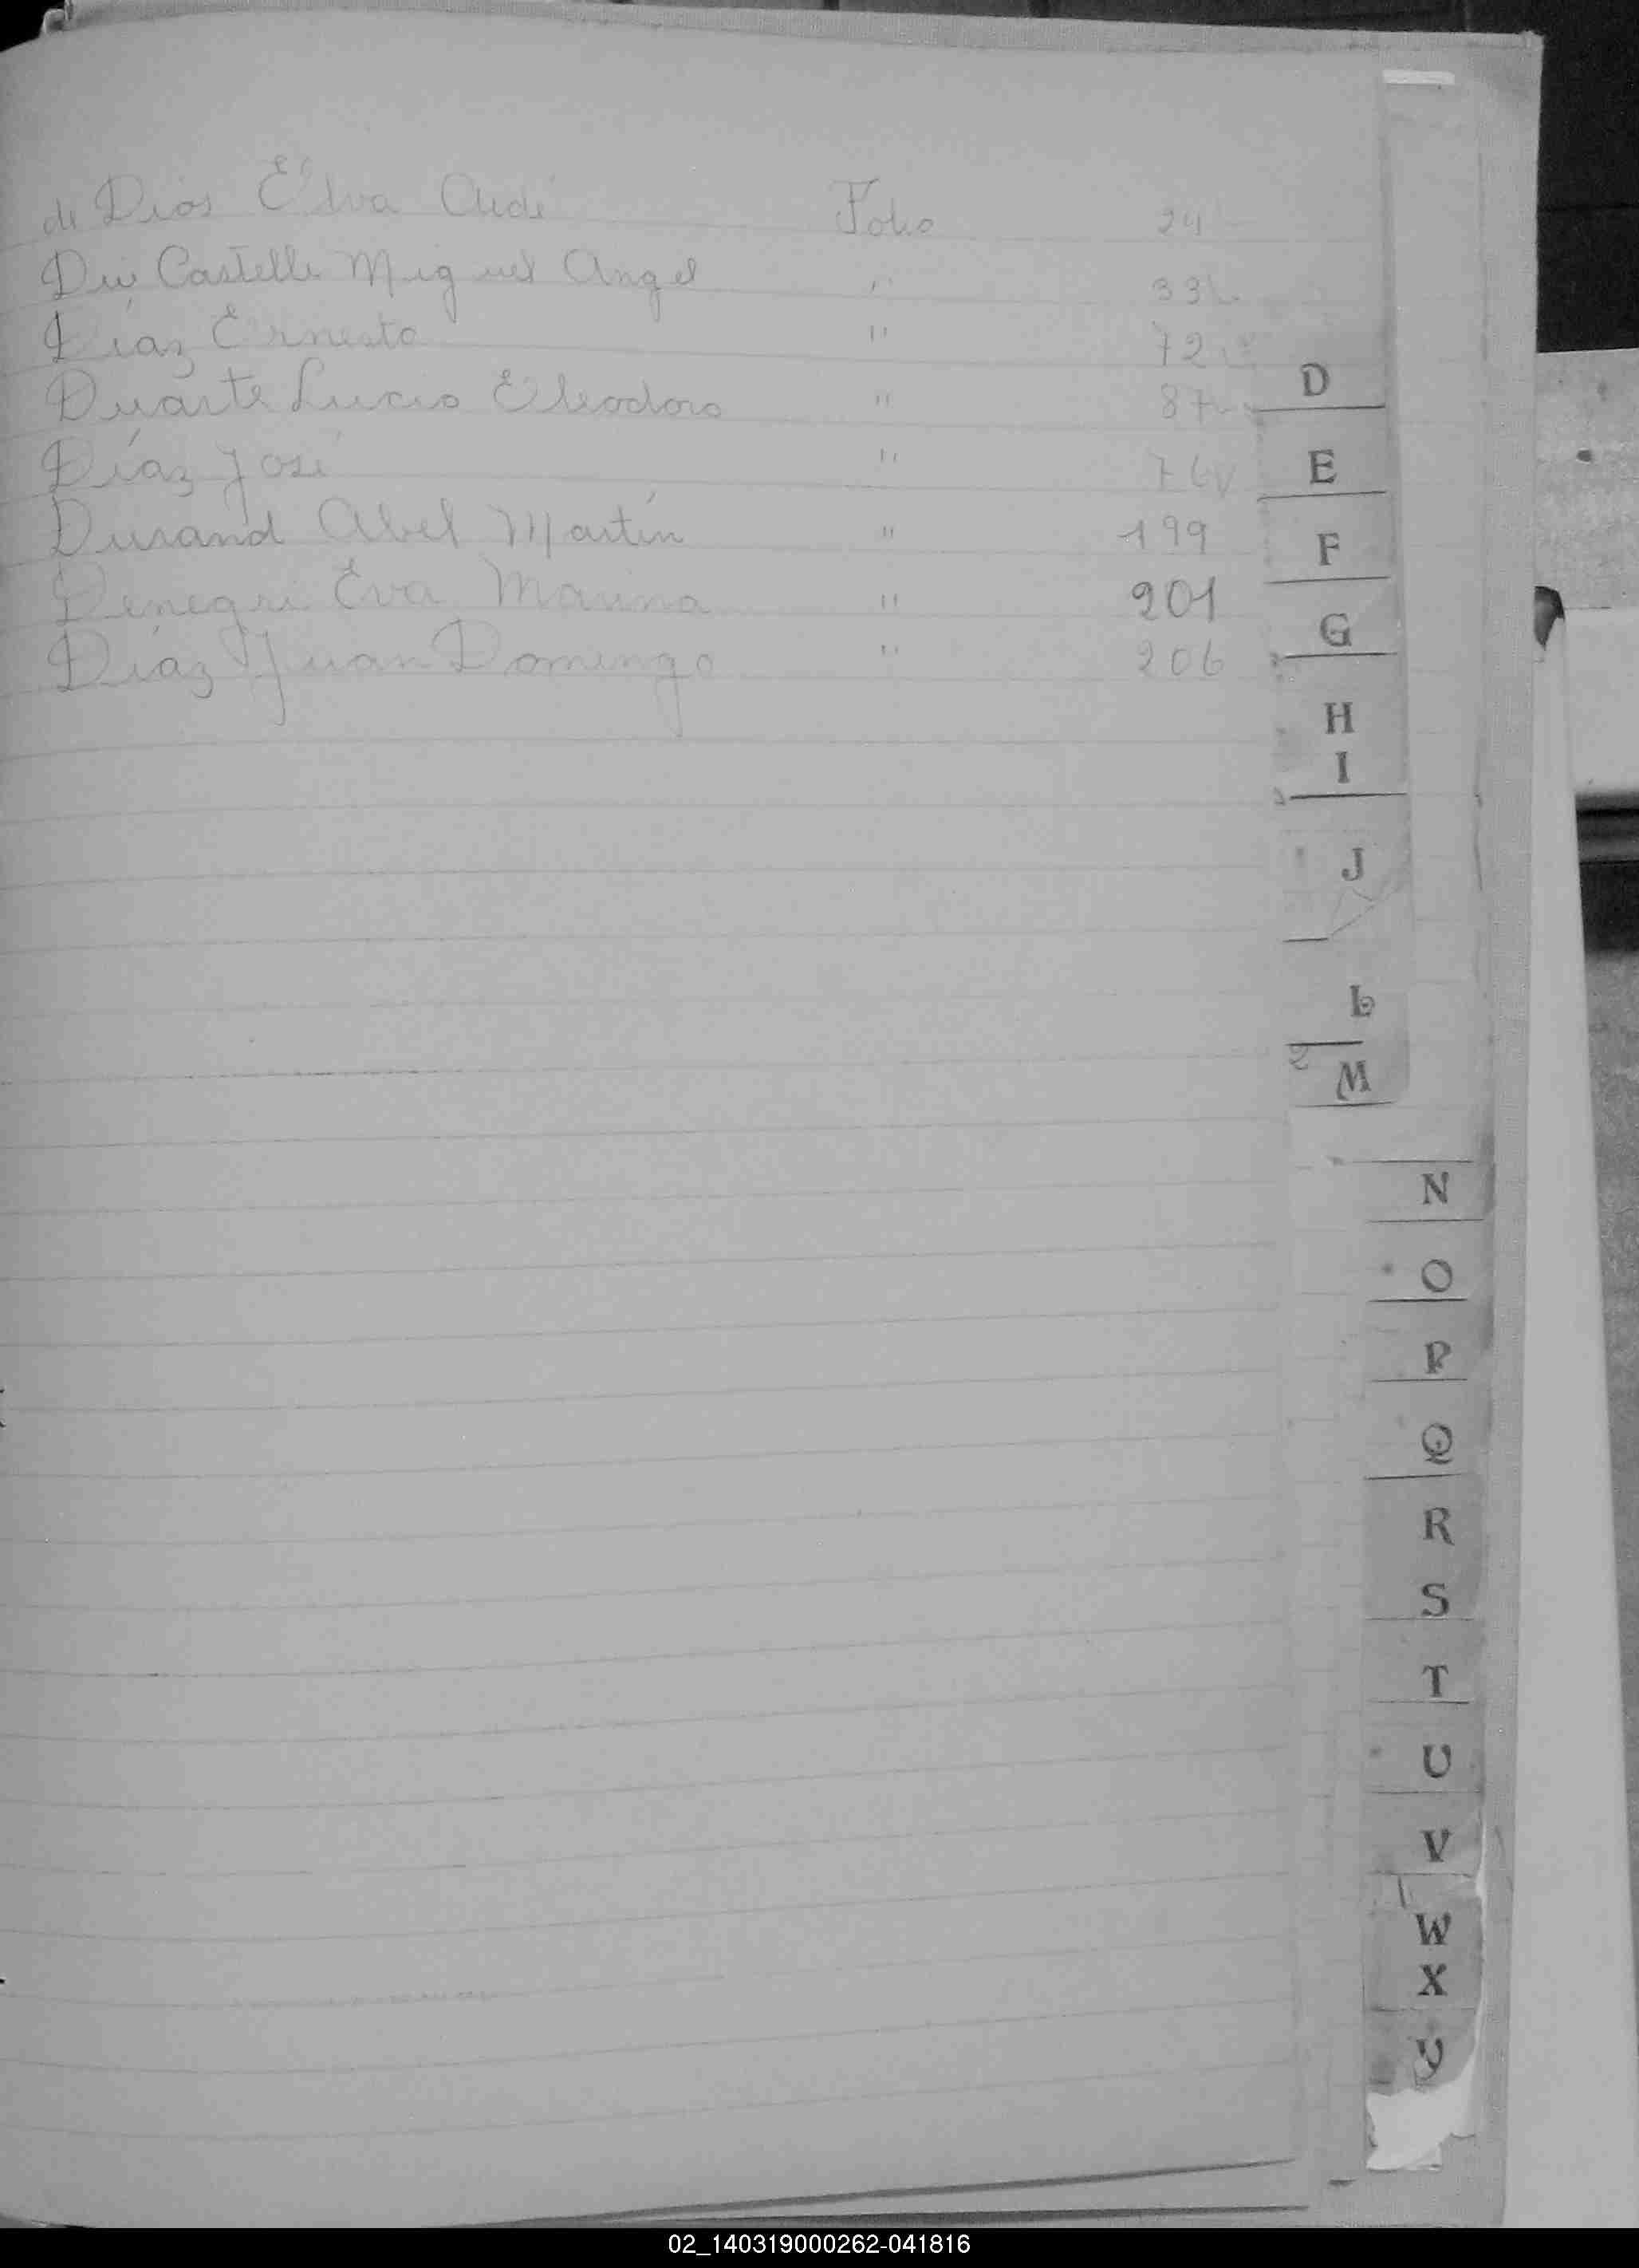 de Dios Elva Aidé Folio 24
Di Castelli Miguel Angel " 33v
Díaz Ernesto " 72v
Duarte Lucio Eleodoro " 87v
Díaz José " 76v
Durand Abel Martín " 199
Denegri Eva Marina " 201
Díaz Juan Domingo " 206
D
E
F
G
H
I
J
L
M
N
O
P
Q
R
S
T
U
V
W
X
Y
02_140319000262-041816